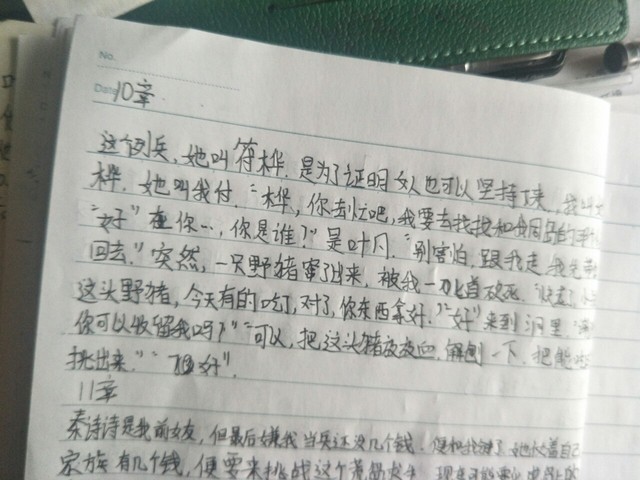 No.
Date 10章
这个列兵,她叫符桦.是为了证明女人也可以坚持下来,我叫
桦.她叫我付.“桦,你去忙吧,我要去找找和我同
“好”在你…,你是谁?”是叶凡.“别害怕.跟我走,我先带
回去.”突然,一只野猪窜了出来,被我一刀砍死.
这头野猪,今天有的吃了,对了,你东西拿好.”“好”来到河里
你可以收留我吗?”“可以,把这头猪放放血.解刨一下.把能
挑出来.”“很好”.
11章
秦诗诗是我前女友,但最后嫌我当兵还没几个钱.便和我分了.她仗着自己
家族有几个钱,便要来挑战这个荒岛求生